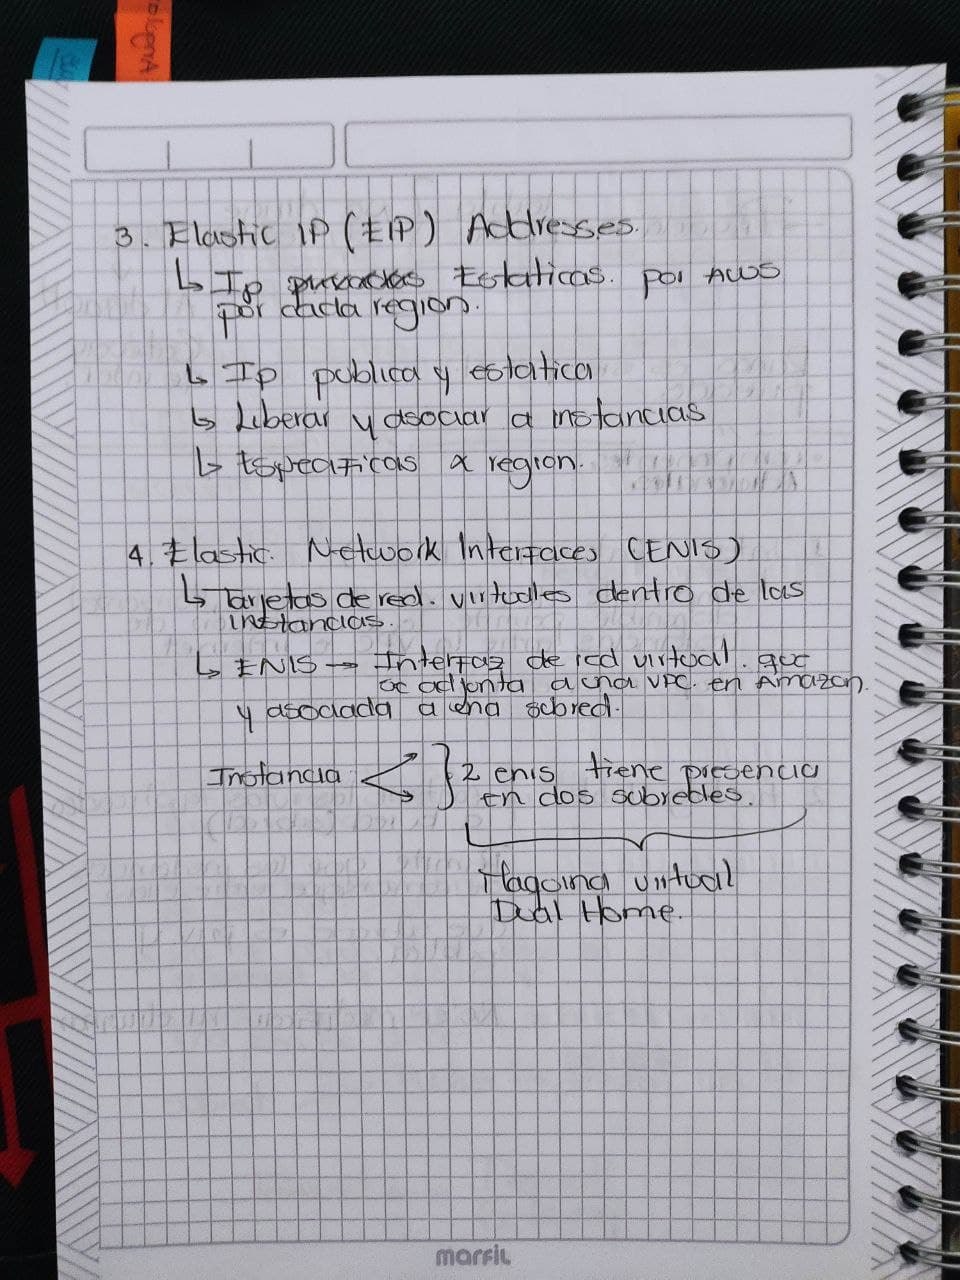 3. Elastic IP (EIP) Addresses.
↳ Ip privadas Estaticas. por AWS
por cada region.
↳ Ip publica y estatica
↳ Liberar y asociar a instancias
↳ Especificas x region.
4. Elastic. Network Interfaces (ENIS)
↳ Tarjetas de red. virtuales dentro de las
instancias.
↳ ENIS → Interfaz de red virtual. que
se adjunta a una VPC. en Amazon.
y asociada a una subred.
Instancia } 2 enis tiene presencia
en dos subredes.
Maquina virtual
Dual Home.
marfil